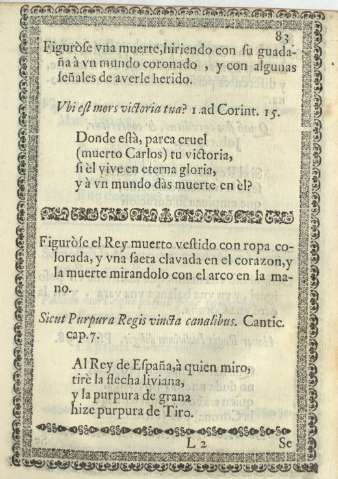 83
Figuròse vna muerte, hiriendo con su guada-
ña à vn mundo coronado , y con algunas
señales de averle herido.
Vbi est mors victoria tua? 1. ad Corint. 15.
Donde està, parca cruel
(muerto Carlos) tu victoria,
si èl vive en eterna gloria,
y à vn mundo das muerte en èl?
Figuròse el Rey muerto vestido con ropa co-
lorada, y vna saeta clavada en el corazon, y
la muerte mirandolo con el arco en la ma-
no.
Sicut Purpura Regis vincta canalibus. Cantic.
cap. 7.
Al Rey de España, à quien miro,
tirè la flecha liviana,
y la purpura de grana
hize purpura de Tiro.
L 2 Se